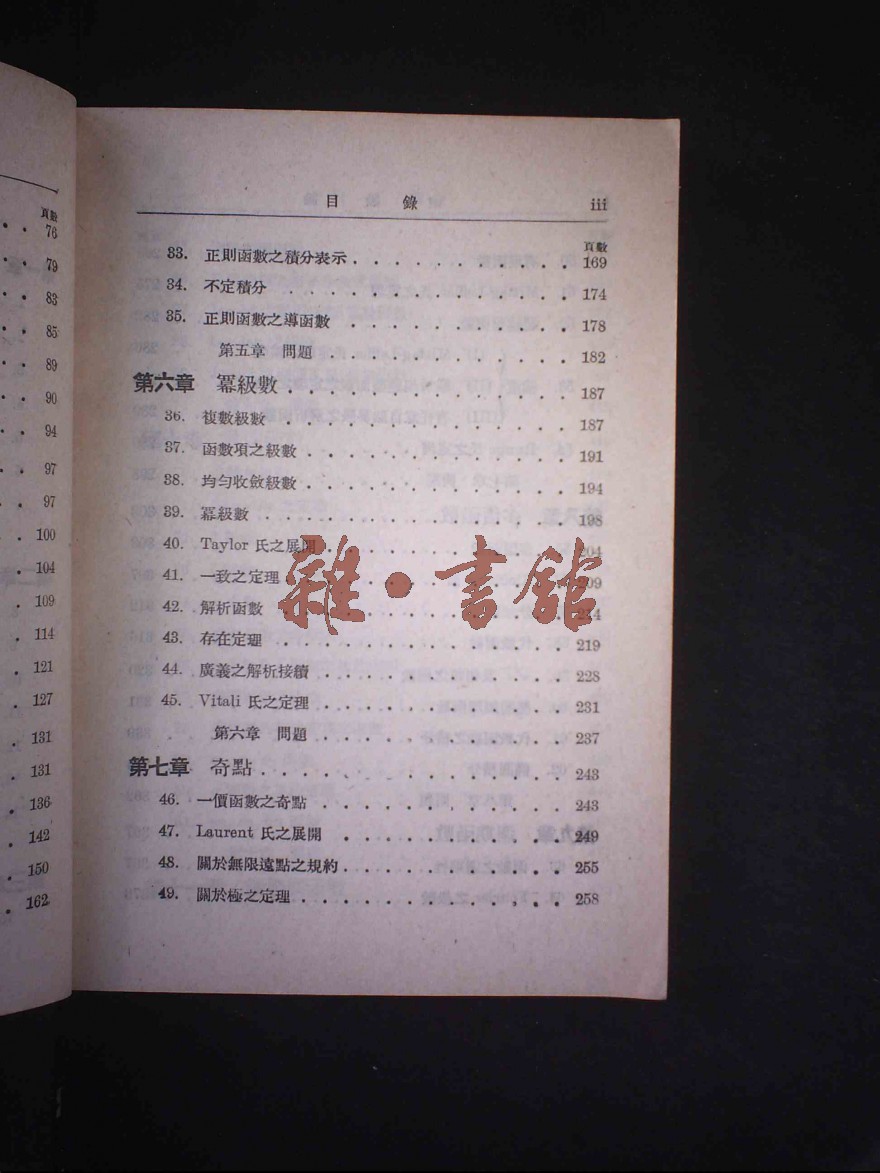 頁數
76
79
83
85
89
90
94
97
97
100
104
109
114
121
127
131
131
136
142
150
162
目 錄 iii
頁數
33. 正則函數之積分表示 . . . . . . . . . . . 169
34. 不定積分 . . . . . . . . . . . . . . . 174
35. 正則函數之導函數 . . . . . . . . . . . . 178
第五章 問題 . . . . . . . . . . . . . 182
第六章 冪級數 . . . . . . . . . . . . . . . 187
36. 複數級數 . . . . . . . . . . . . . . . 187
37. 函數項之級數 . . . . . . . . . . . . . . 191
38. 均勻收斂級數 . . . . . . . . . . . . . . 194
39. 冪級數 . . . . . . . . . . . . . . . . 198
40. Taylor 氏之展開 . . . . . . . . . . . . . 204
41. 一致之定理 . . . . . . . . . . . . . . 209
42. 解析函數 . . . . . . . . . . . . . . . 214
43. 存在定理 . . . . . . . . . . . . . . . 219
44. 廣義之解析接續 . . . . . . . . . . . . . 228
45. Vitali 氏之定理 . . . . . . . . . . . . . 231
第六章 問題 . . . . . . . . . . . . . 237
第七章 奇點 . . . . . . . . . . . . . . . . 243
46. 一價函數之奇點 . . . . . . . . . . . . . 243
47. Laurent 氏之展開 . . . . . . . . . . . . 249
48. 關於無限遠點之規約 . . . . . . . . . . . . 255
49. 關於極之定理 . . . . . . . . . . . . . . 258
雜·書館